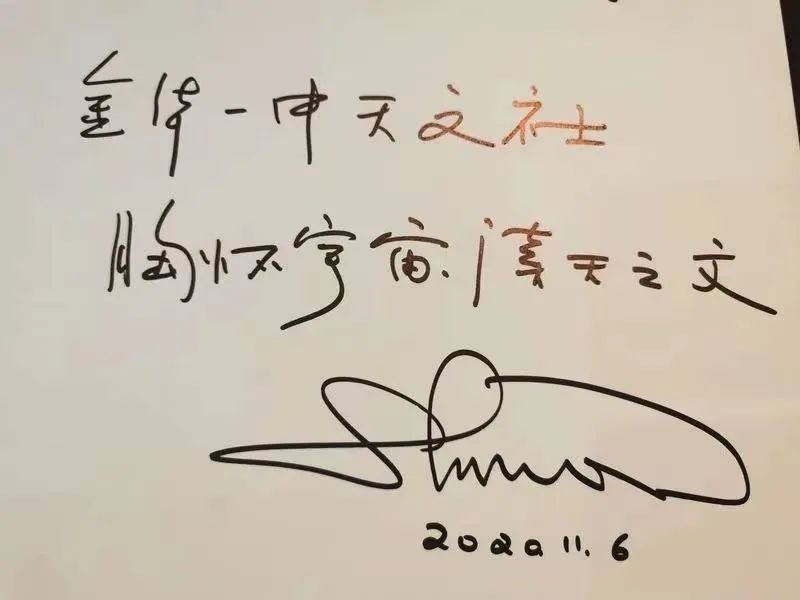 金华一中天文社
胸怀宇宙 读天之文
2020.11.6